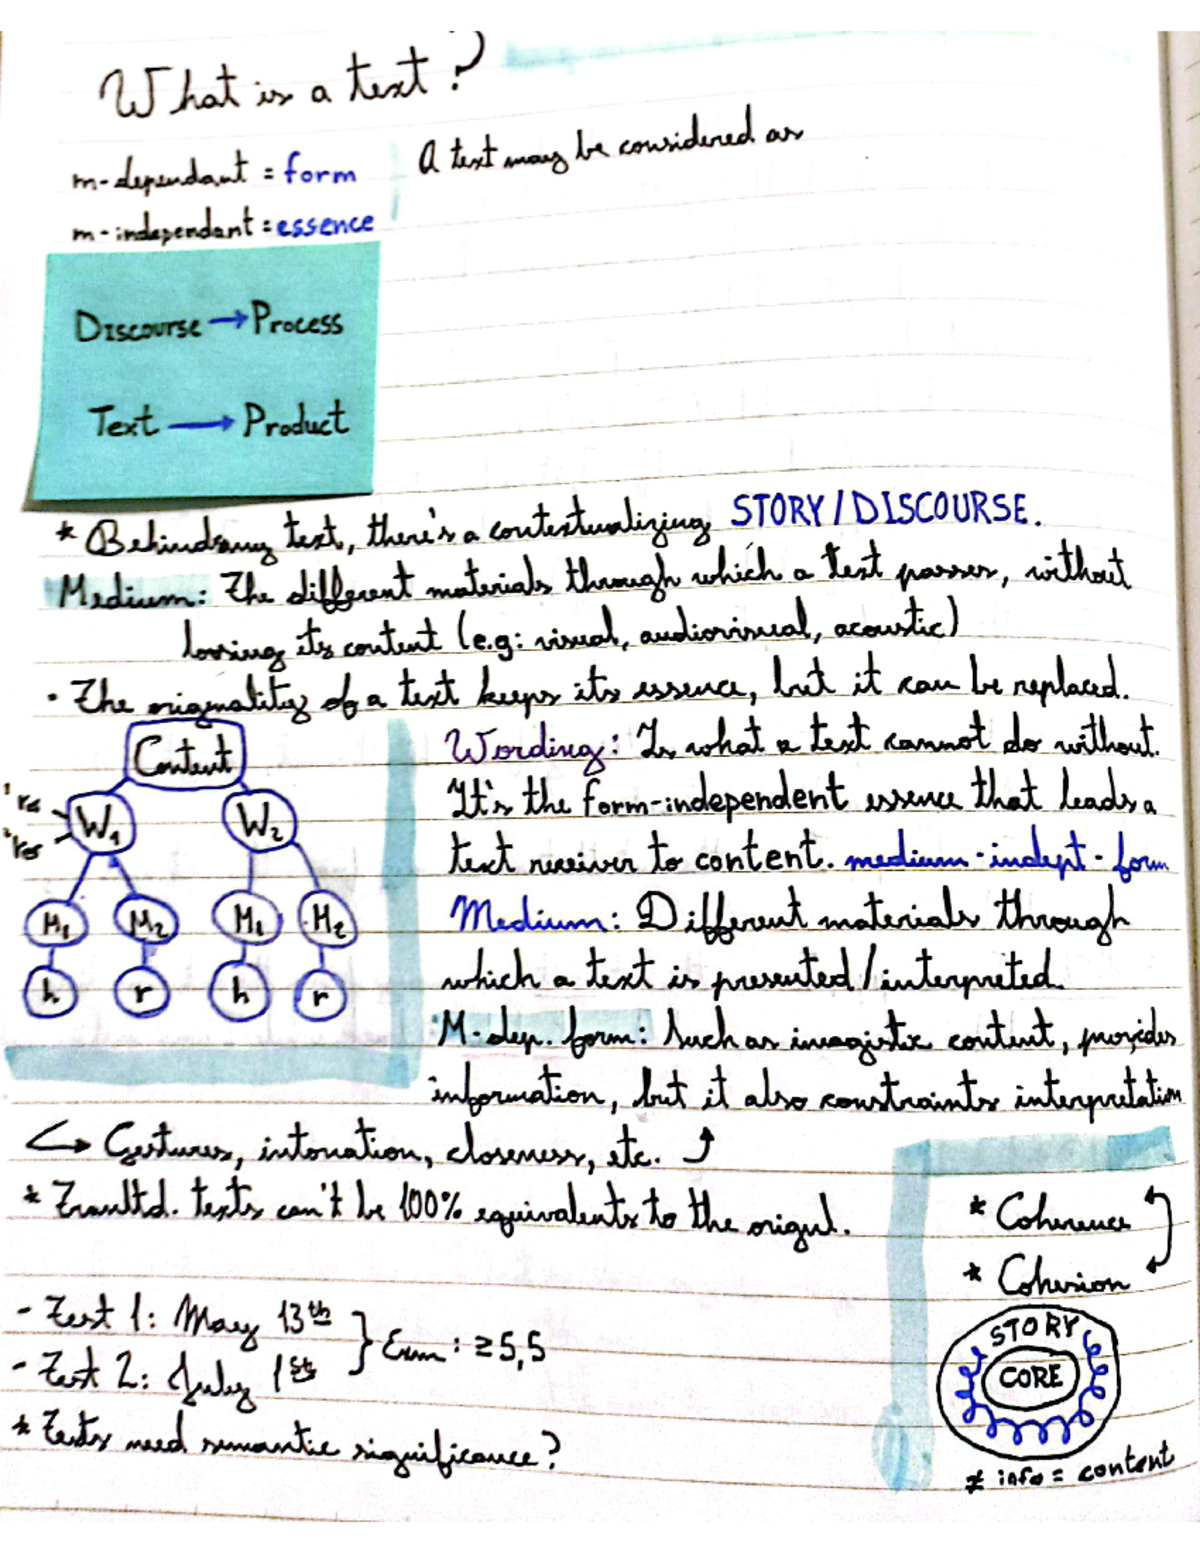 What is a text?
m-dependant = form
m-independant = essence
A text may be considered as
Discourse → Process
Text → Product
* Behind any text, there's a contextualizing STORY/DISCOURSE.
Medium: The different materials through which a text passes, without
loosing its content (e.g: visual, audiovisual, acoustic)
· The originality of a text keeps its essence, but it can be replaced.
Content
W1 W2
M1 M2 M1 M2
h r h r
Wording: Is what a text cannot do without.
It's the form-independent essence that leads a
text receiver to content. medium-indept-form
Medium: Different materials through
which a text is presented/interpreted.
M-dep. form: Such as imagistic content, provides
information, but it also constraints interpretation
↪ Gestures, intonation, closeness, etc. ⤴
* Transltd. texts can't be 100% equivalents to the
* Coherence
* Cohesion
- Test 1: May 13th
- Test 2: July 1st
} Exm: ≥5,5
* Texts need semantic significance?
STORY
CORE
≠ info = content